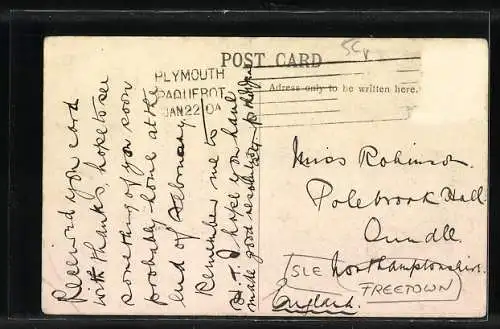 POST CARD
5Cv
PLYMOUTH
PAQUEBOT
JAN 22 04
Adress only to be written here.
Received you card
with thanks, hope to see
something of you soon
probably home at the
end of February.
Remember me to
I hope you have
made good resolutions
Miss Robinson.
Polebrook Hall.
Oundle.
SLE Northamptonshire.
FREETOWN
England.